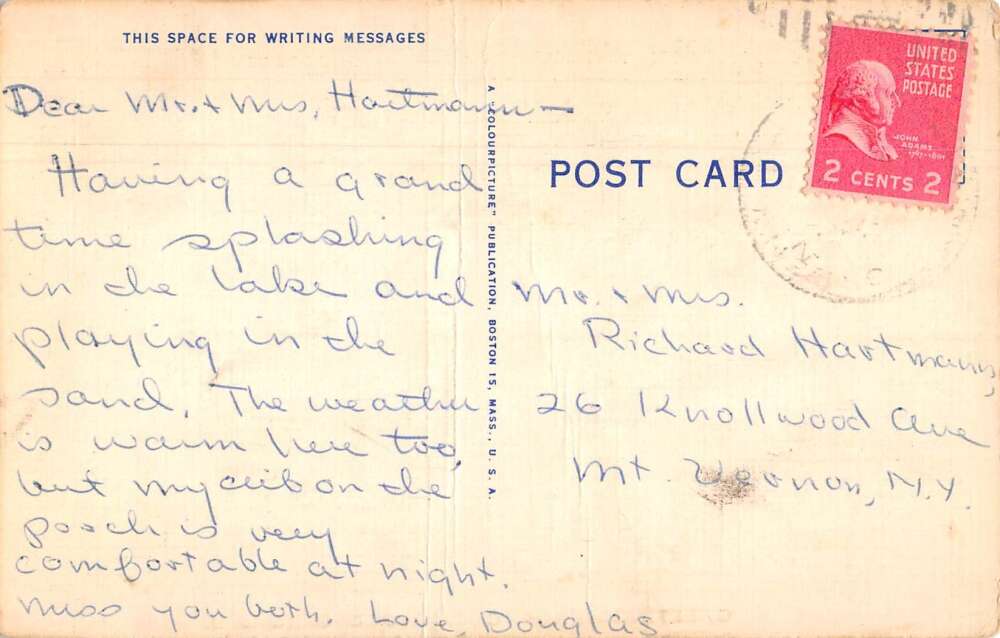 THIS SPACE FOR WRITING MESSAGES
Dear Mr. + Mrs. Hartmann —
Having a grand
time splashing
in the lake and
playing in the
sand. The weather
is warm here too,
but my crib on the
porch is very
comfortable at night.
Miss you both. Love, Douglas
A "COLOURPICTURE" PUBLICATION, BOSTON 15, MASS., U. S. A.
POST CARD
UNITED
STATES
POSTAGE
JOHN
ADAMS
1797-1801
2 CENTS 2
Mr. + Mrs.
Richard Hartmann,
26 Knollwood Ave
Mt. Vernon, N.Y.